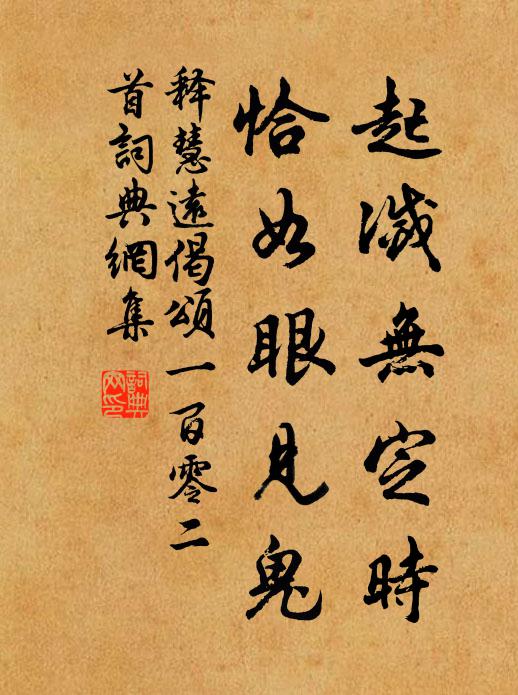 起滅無定時
恰如眼見鬼
释慧遠偈頌一百零二
首詞典網集
詞典
网印